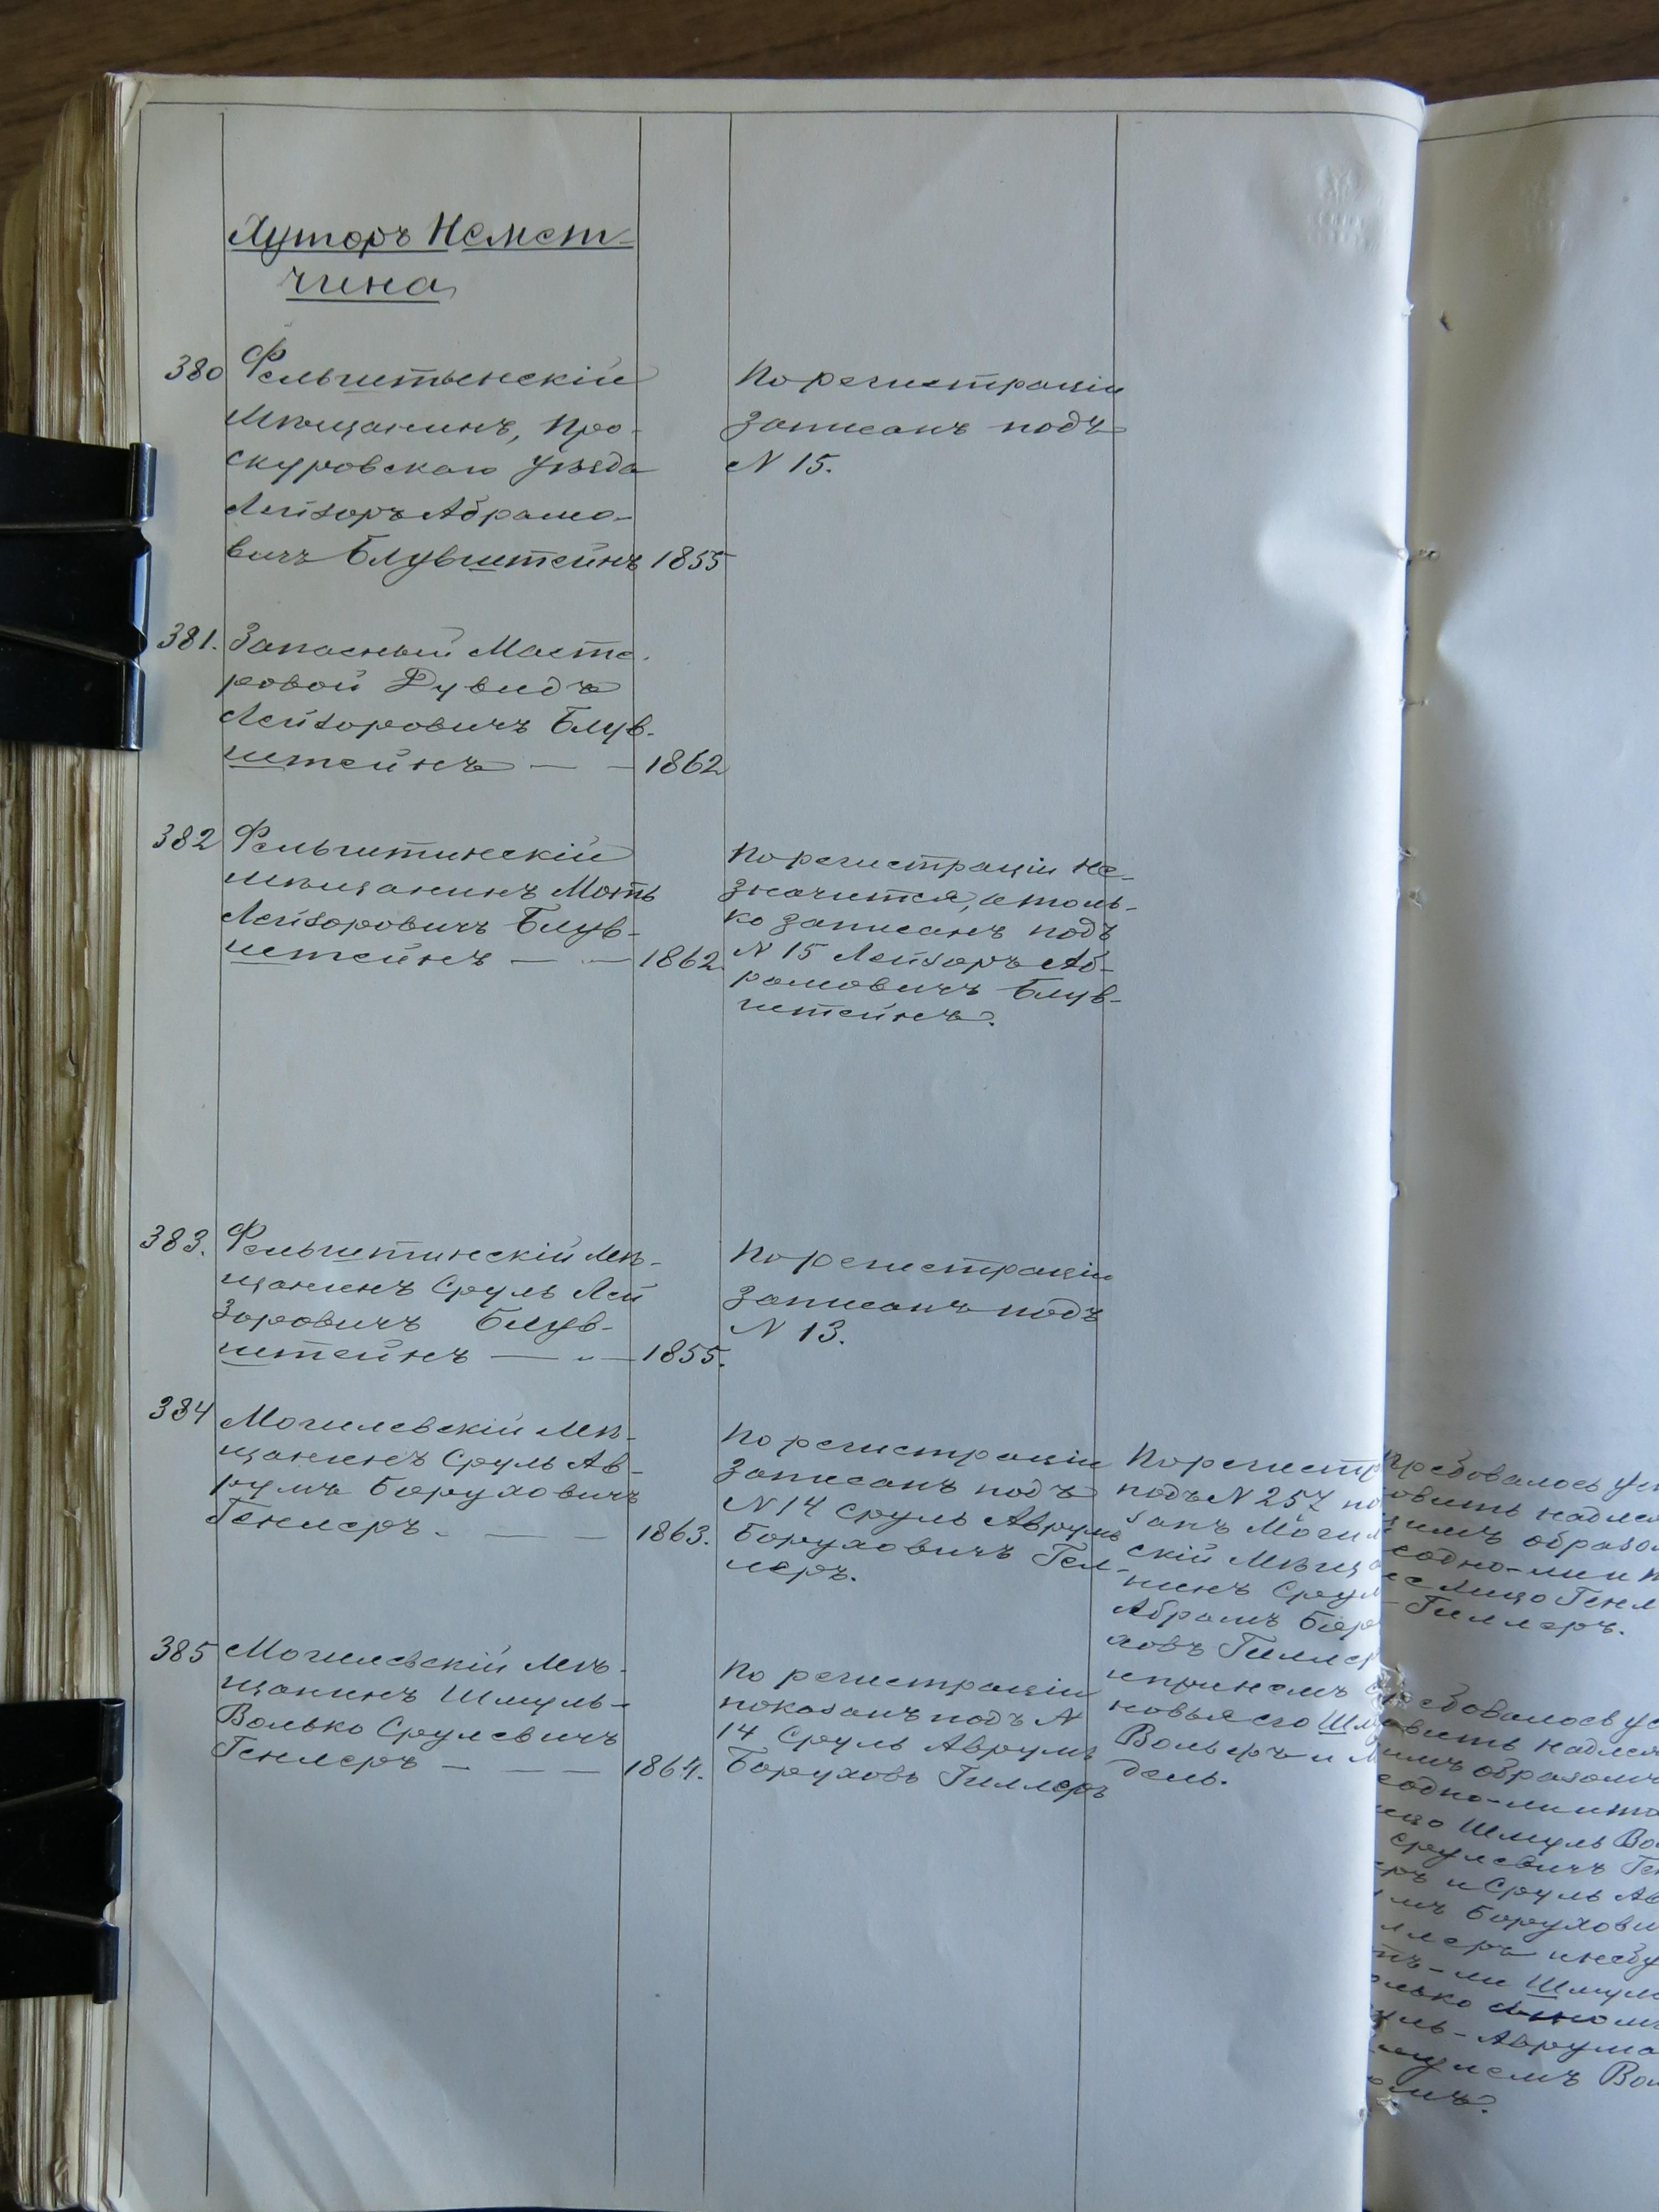 Хуторъ Немет-
чина
380 Фельштенскій
Мѣщанинъ, Про-
скуровскаго Уѣзда
Лейзоръ Абрамо-
вичъ Блувштейнъ 1855
По регистраціи
записанъ подъ
N 15.
381. Запасный Масте-
ровой Дувидъ
Лейзоровичъ Блув-
штейнъ — — 1862
382 Фельштинскій
мѣщанинъ Моть
Лейзоровичъ Блув-
штейнъ — — 1862.
По регистраціи не
значится, а толь-
ко записанъ подъ
N 15 Лейзоръ Аб-
рамовичъ Блув-
штейнъ.
383. Фельштинскій Мѣ-
щанинъ Сруль Лей
зоровичъ Блув-
штейнъ — „ — 1855.
По регистраціи
записанъ подъ
N 13.
384 Могилевскій Мѣ-
щанинъ Сруль Ав-
румъ Боруховичъ
Генлеръ. — — 1863.
По регистраціи
записанъ подъ
N 14 Сруль Аврумъ
Боруховичъ Гел-
леръ.
По регистр
подъ N 257 по
занъ Могил
скій Мѣща
нинъ Срул
Абрамъ Бор
ховъ Гиллер
и при немъ с
новья его Шм
Вольфъ и М
дель.
385 Могилевскій Мѣ-
щанинъ Шмуль-
Волько Срулевичъ
Генлеръ — — — 1864.
По регистраціи
показанъ подъ N
14 Сруль Аврумъ
Боруховъ Гиллеръ
требовалось ус
овить надле
имъ образо
одно-ли и т
е лицо Генл
- Гиллеръ.
ребовалось ус
овить надле
имъ образомъ
одно-ли и то
ицо Шмуль Во
Срулевичъ Ге
ръ и Сруль Ав
мъ Борухови
ллеръ и небу
тъ-ли Шмул
олько
уль-Аврума
муемъ Вол
омъ.